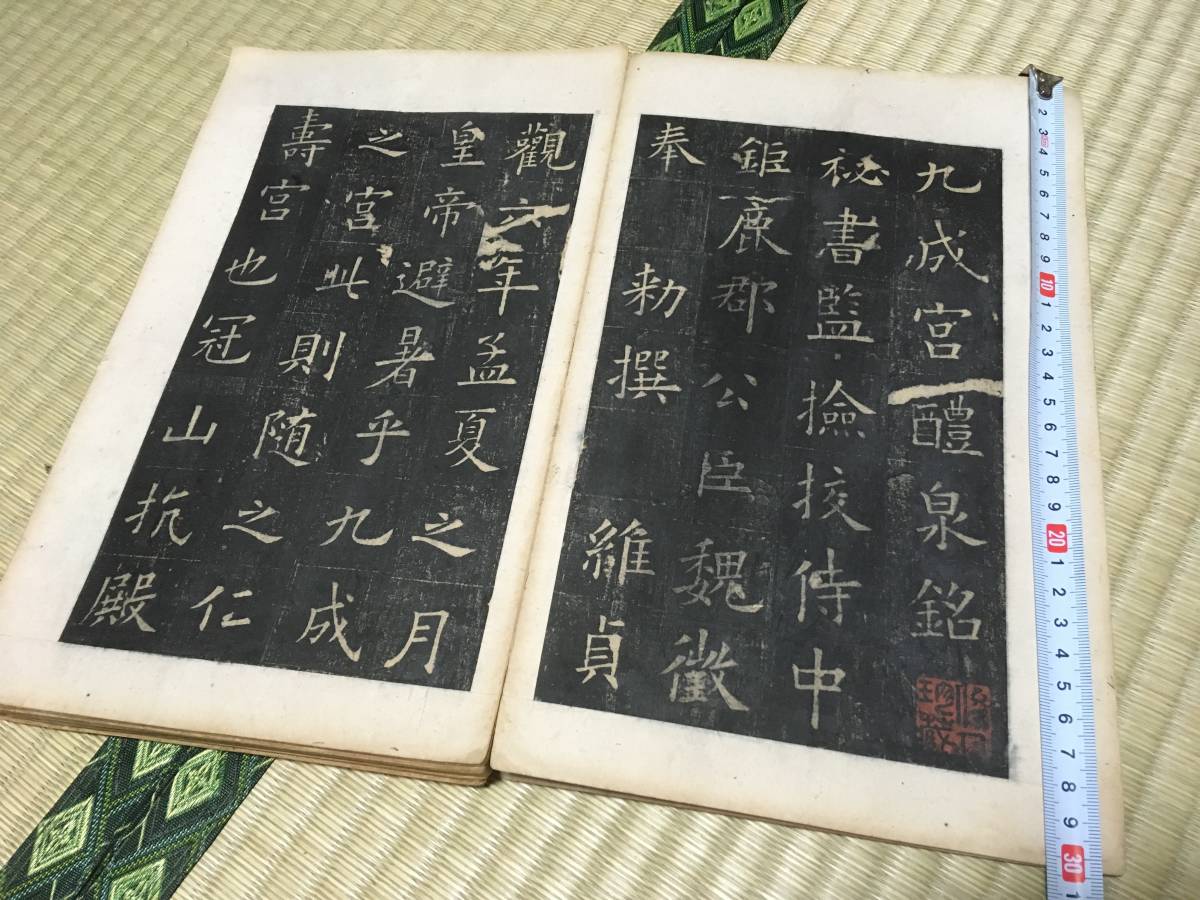 九成宮醴泉銘
祕書監撿挍侍中
鉅鹿郡公臣魏徵
奉勑撰維貞
觀六年孟夏之月
皇帝避暑乎九成
之宮此則隨之仁
壽宮也冠山抗殿
2 3 4 5 6 7 8 9 10 1 2 3 4 5 6 7 8 9 20 1 2 3 4 5 6 7 8 9 30 1